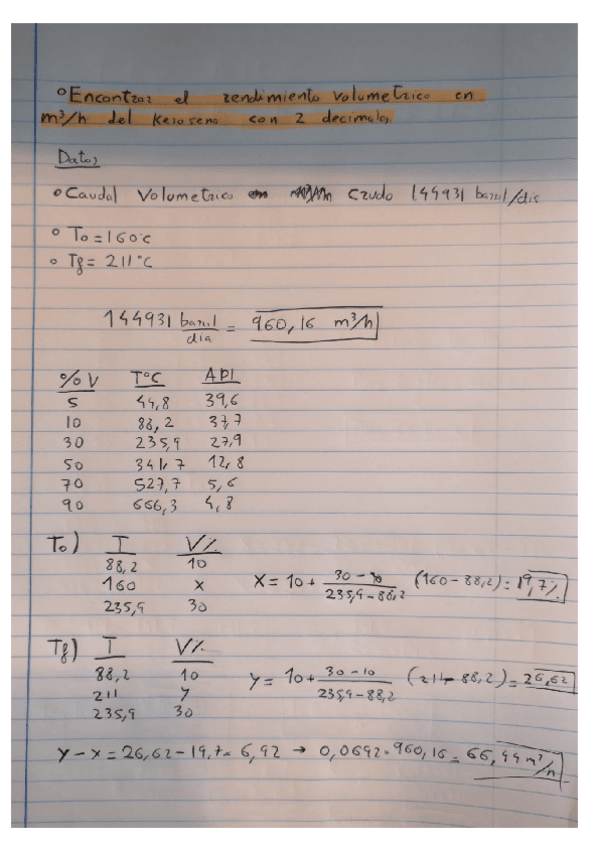 ° Encontrar el rendimiento Volumetrico en
m³/h del Keroseno con 2 decimales
Datos
° Caudal Volumetrico en crudo 144931 barril/dia
° To = 160°C
° Tf = 211°C
144931 barril/dia = 960,16 m³/h
% V T°C API
5 44,8 39,6
10 88,2 37,7
30 235,9 27,9
50 341,7 12,8
70 527,7 5,6
90 666,3 4,8
To) T V%
88,2 10
160 x X = 10 + 30 - 10 / 235,9 - 88,2 (160 - 88,2) = 19,7%
235,9 30
Tf) T V%
88,2 10 y = 10 + 30 - 10 / 235,9 - 88,2 (211 - 88,2) = 26,62
211 y
235,9 30
y - x = 26,62 - 19,7 = 6,92 → 0,0692 · 960,16 = 66,44 m³/h